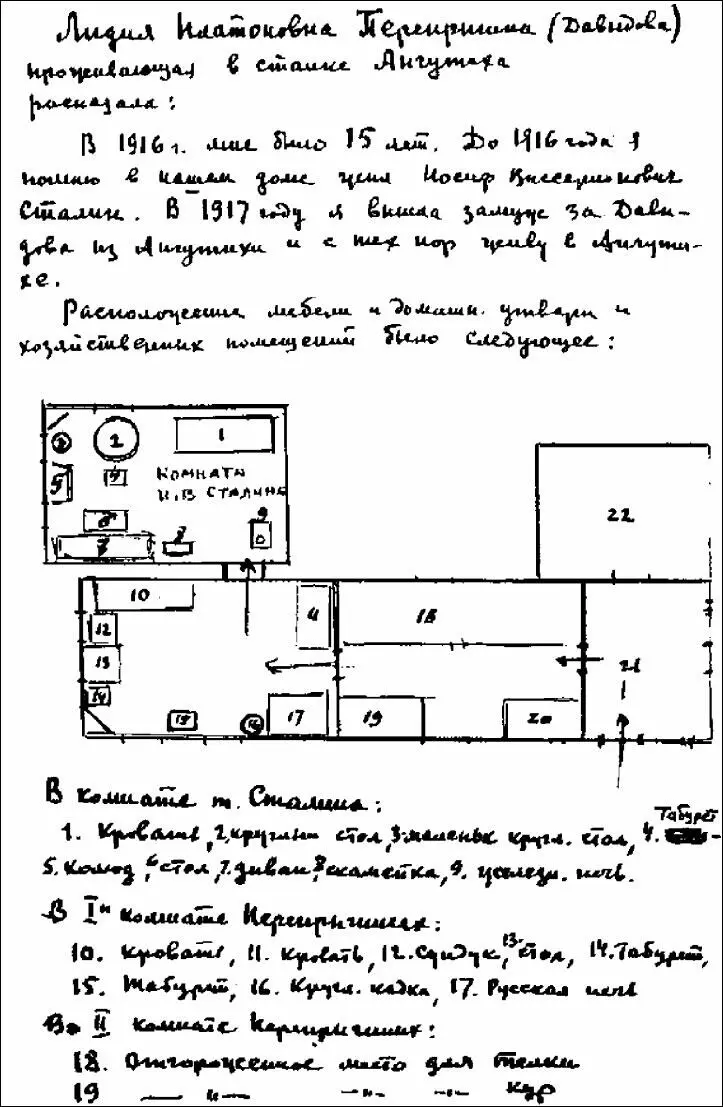 Лидия Платоновна Перепрыгина (Давыдова)
проживающая в станке Ангутиха
рассказала:
В 1916 г. мне было 15 лет. До 1916 года я
помню в нашем доме жил Иосиф Виссарионович
Сталин. В 1917 году я вышла замуж за Давы-
дова из Ангутихи и с тех пор живу в Ангути-
хе.
Расположение мебели и домашн. утвари и
хозяйственных помещений было следующее:
3 2 1
5 4 КОМНАТА
И.В СТАЛИНА
6 9
7 8
22
10 4 18
12
13 21
14
15 16 17 19 20
В комнате т. Сталина:
1. Кровать, 2. круглый стол, 3. маленьк кругл. стол, 4. Табурет -
5. Комод, 6 стол, 7. диван, 8 скамейка, 9. железн. печь.
В I й комнате Перепрыгиных:
10. Кровать, 11. Кровать, 12. Сундук, 13. стол, 14. Табурет,
15. Табурет, 16. Кругл. кадка, 17. Русская печь
Во II комнате Перепрыгиных:
18. Отгороженное место для телки
19 — „ — — „ — — „ — кур